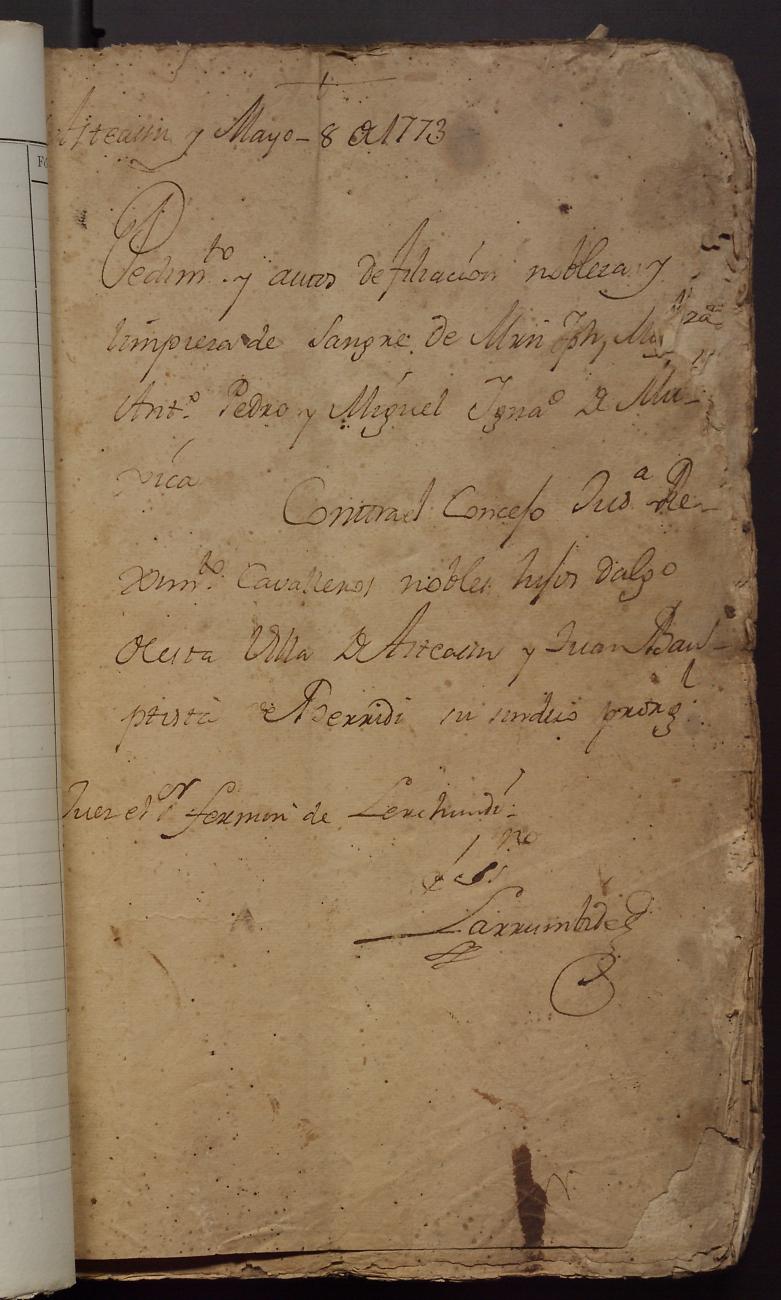 Asteasu y Mayo - 8 de 1773
Pedim.to y autos de filiacion nobleza y
limpieza de Sangre de Mrn Jph,
Ant.o Pedro y Miguel Ygna.o de Mu-
xica
Contra el Concejo Jus.a Re-
ximto. Cavalleros nobles hijos dalgo
de esta Villa de Asteasu y Juan Bau-
ptista de Berridi su sindico pror gl.
Juez el Sr fermin de Lerchundi.
Essno
Larrumbide